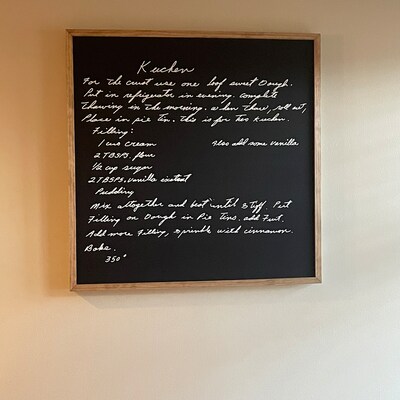 Kuchen
For the crust use one loaf sweet Dough.
Put in refrigerator in evening. complete
thawing in the morning. when thaw, roll out,
Place in pie tin. this is for two Kuchen.
Filling:
1 cup cream also add some vanilla
2 TBSPS. flour
1/2 cup sugar
2 TBSPS. Vanilla instant
Pudding
Mix altogether and beat until stiff. Put
Filling on Dough in Pie Tins. add Fruit.
Add more Filling, sprinkle with cinnamon.
Bake.
350°